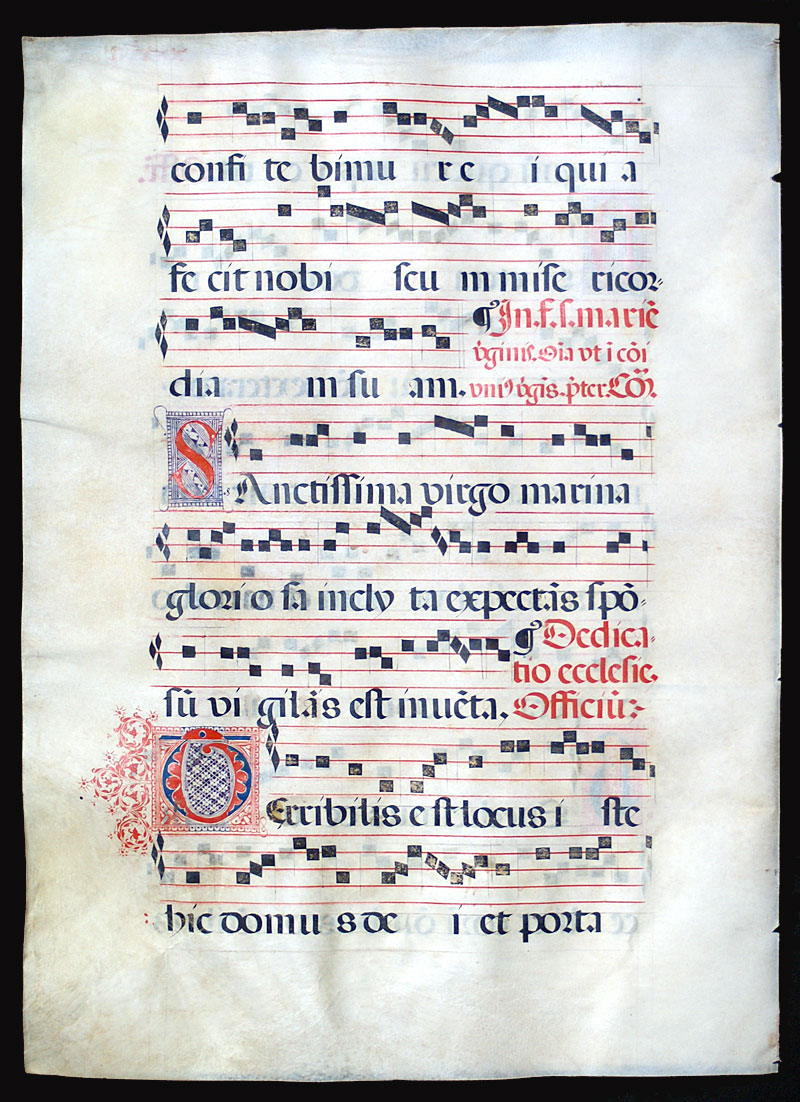 confi te bimu r e i qui a
fe cit nobi scu m mise ricor-
dia m su am. ¶ In. f. s. marie
v̄ginis. Oīa vt i cōi
vni⁹ v̄gis. p̄ter. Cō⁊.
SAnctissima virgo marina
glorio sa inclv ta expectās spō-
¶ Dedica-
tio ecclesie.
sū vi gilās est inuēta. Officiū:-
TErribilis e st locus i ste
hic domu s de i et porta